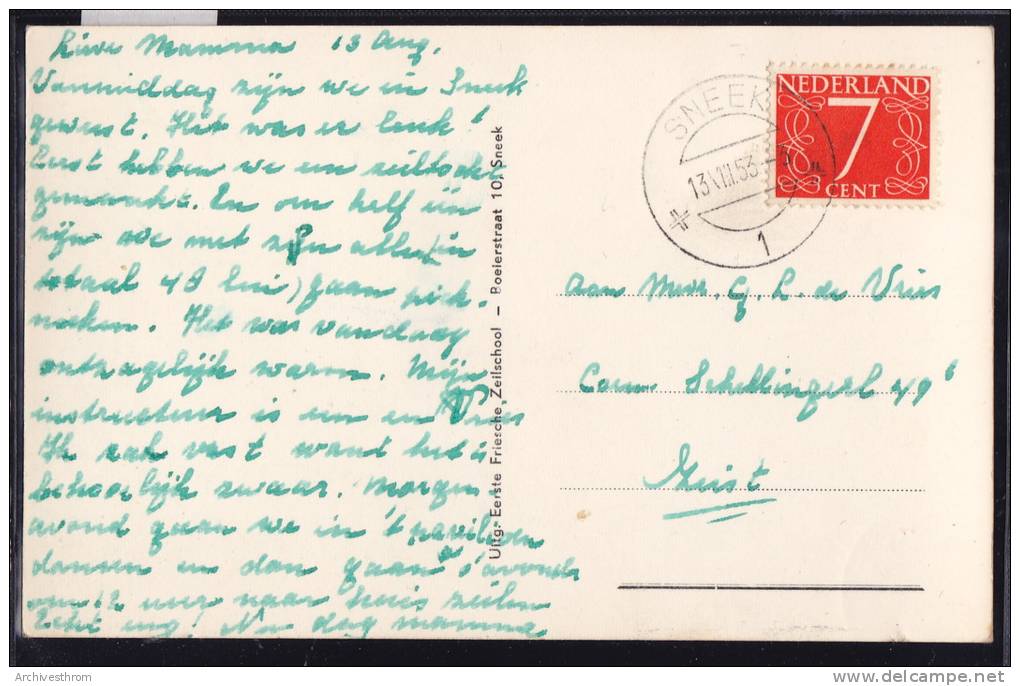 Lieve Mamma 13 Aug.
Vanmiddag zijn we in Sneek
geweest. Het was er leuk!
Eerst hebben we een zeiltocht
gemaakt. En om half één
zijn we met zijn allen (in
totaal 49 lui) gaan pick-
nicken. Het was vandaag
ontzagelijk warm. Mijn
instructeur is een en Vries
Ik zak vast want het is
behoorlijk zwaar. Morgen-
avond gaan we in 't paviljoen
dansen en dan gaan 's avonds
om 12 uur naar huis zeilen
Echt enig! Nu dag mamma
Uitg. Eerste Friesche Zeilschool - Boeierstraat 10, Sneek
SNEEK
13.VIII.53
1
NEDERLAND
7
CENT
Aan Mevr. G. L. de Vries
Corn. Schellingerl 49
Zeist
Archivesthrom
www.delcampe.net